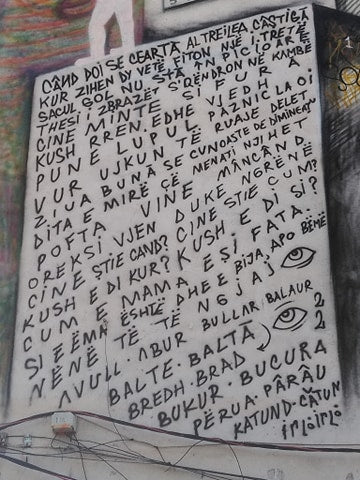 CÂND DOI SE CEARTĂ AL TREILEA CÂSTIGĂ
KUR ZIHEN DY VETË FITON NJË I TRETË
SACUL GOL NU STĂ ÎN PICIOARE
THESI I ZBRAZËT S'QËNDRON NË KAMBË
CINE MINTE SI FURĂ
KUSH RREN.EDHE VJEDH
PUNE LUPUL PAZNIC LA OI
VUR UJKUN TË RUAJE DELET
ZIUA BUNĂ SE CUNOASTE DE DIMINEAȚĂ
DITA E MIRË ÇË MENATI NJIHET
POFTA VINE MÂNCÂND
OREKSI VJEN DUKE NGRËNË
CINE ȘTIE CAND? CINE STIE CUM?
KUSH E DI KUR? KUSH E DI SI?
CUM E MAMA E ȘI FATA.
SI E ËMA ËSHTË DHE E BIJA, APO BËMË
NËNË TË TË NGJAJ
AVULL.ABUR BULLAR BALAUR
BALTE.BALTĂ 2
BREDH.BRAD 2
BUKUR.BUCURA
PËRUA.PÂRÂU
KATUND.CĂTUN